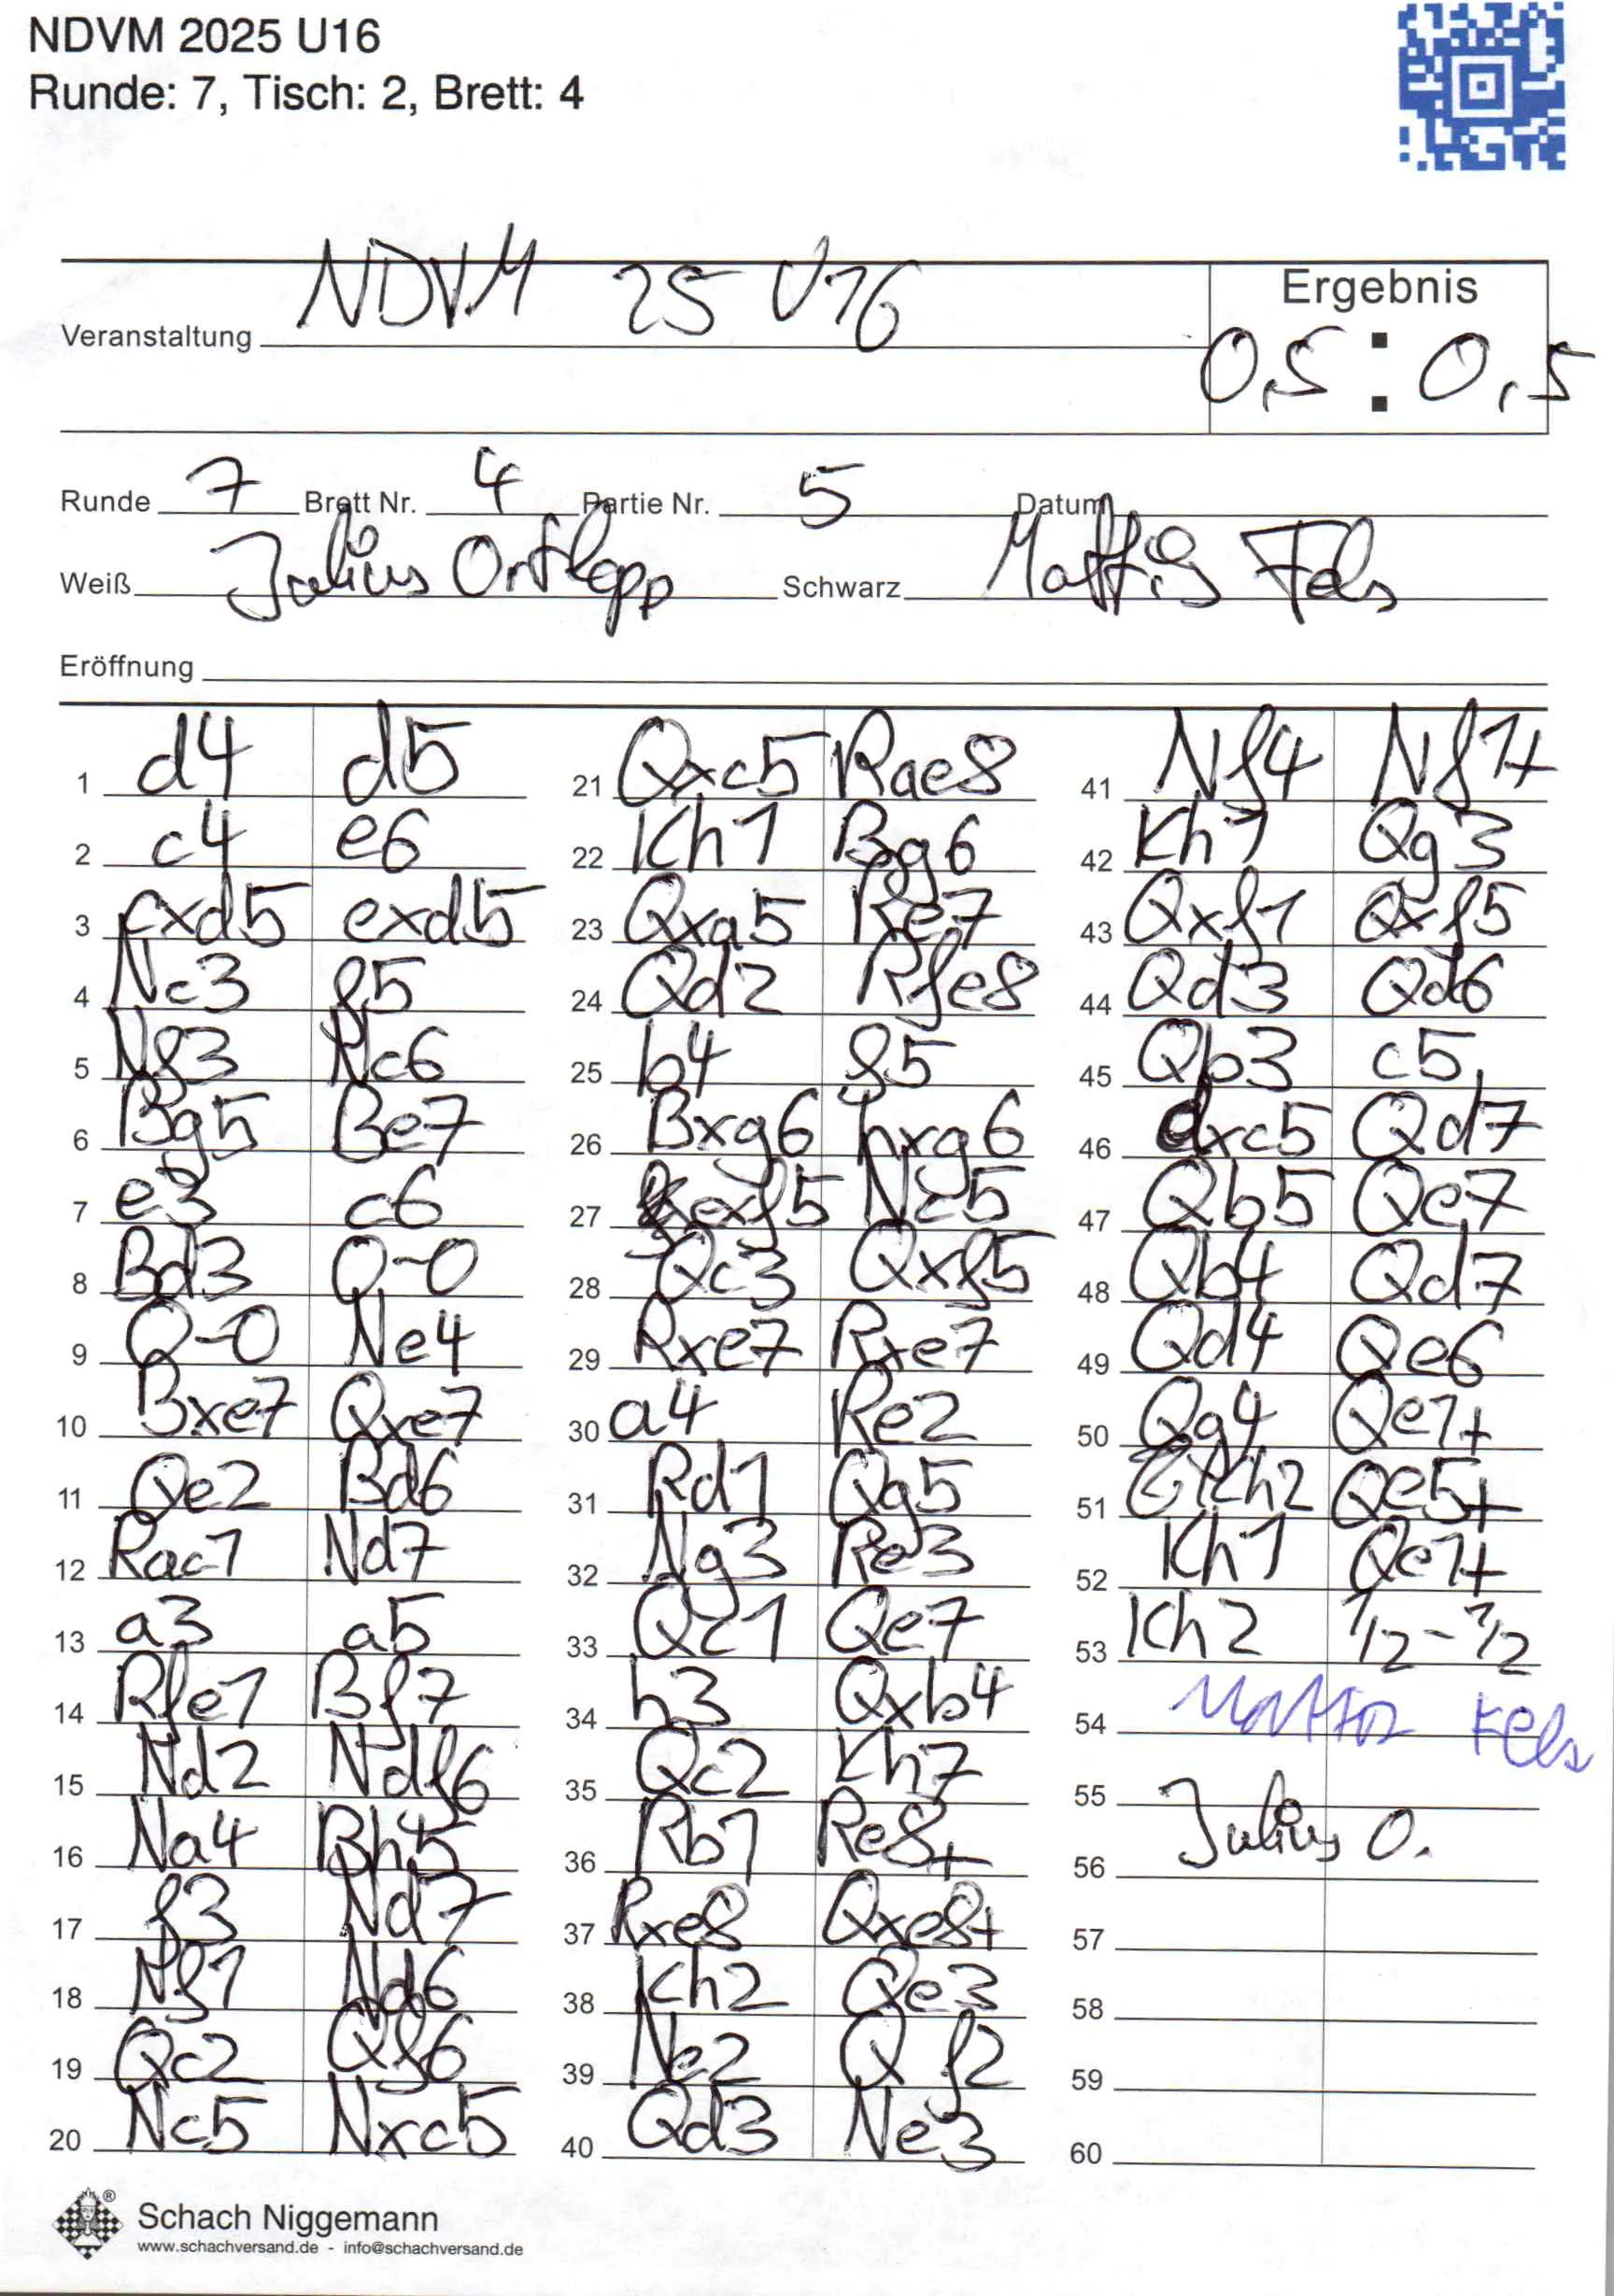 NDVM 2025 U16
Runde: 7, Tisch: 2, Brett: 4
Veranstaltung NDVM 25 U16
Ergebnis
0,5 : 0,5
Runde 7 Brett Nr. 4 Partie Nr. 5 Datum
Weiß Julius Ortlepp Schwarz Mattis Fels
Eröffnung
1 d4 d5
2 c4 e6
3 cxd5 exd5
4 Nc3 f5
5 Nf3 Nc6
6 Bg5 Be7
7 e3 c6
8 Bd3 O-O
9 O-O Ne4
10 Bxe7 Qxe7
11 Qe2 Bd6
12 Rac1 Nd7
13 a3 a5
14 Rfe1 Bf7
15 Nd2 Ndf6
16 Na4 Bh5
17 f3 Nd7
18 Nf1 Nd6
19 Qc2 Qf6
20 Nc5 Nxc5
21 Qxc5 Rae8
22 Kh1 Bg6
23 Qxa5 Re7
24 Qd2 Rfe8
25 b4 f5
26 Bxg6 hxg6
27 exf5 Nc5
28 Qc3 Qxf5
29 Rxe7 Rxe7
30 a4 Re2
31 Rd1 Qg5
32 Ng3 Re3
33 Qc1 Qe7
34 h3 Qxb4
35 Qc2 Kh7
36 Rb1 Re8+
37 Rxe8 Qxe8+
38 Kh2 Qe3
39 Ne2 Qf2
40 Qd3 Ne3
41 Nf4 Nf1+
42 Kh1 Qg3
43 Qxf1 Qxf5
44 Qd3 Qd6
45 Qb3 c5
46 dxc5 Qd7
47 Qb5 Qe7
48 Qb4 Qd7
49 Qd4 Qe6
50 Qg4 Qe1+
51 Kh2 Qe5+
52 Kh1 Qe1+
53 Kh2 1/2-1/2
54 Mattis Fels
55
56 Julius O.
57
58
59
60
®
Schach Niggemann
www.schachversand.de - info@schachversand.de